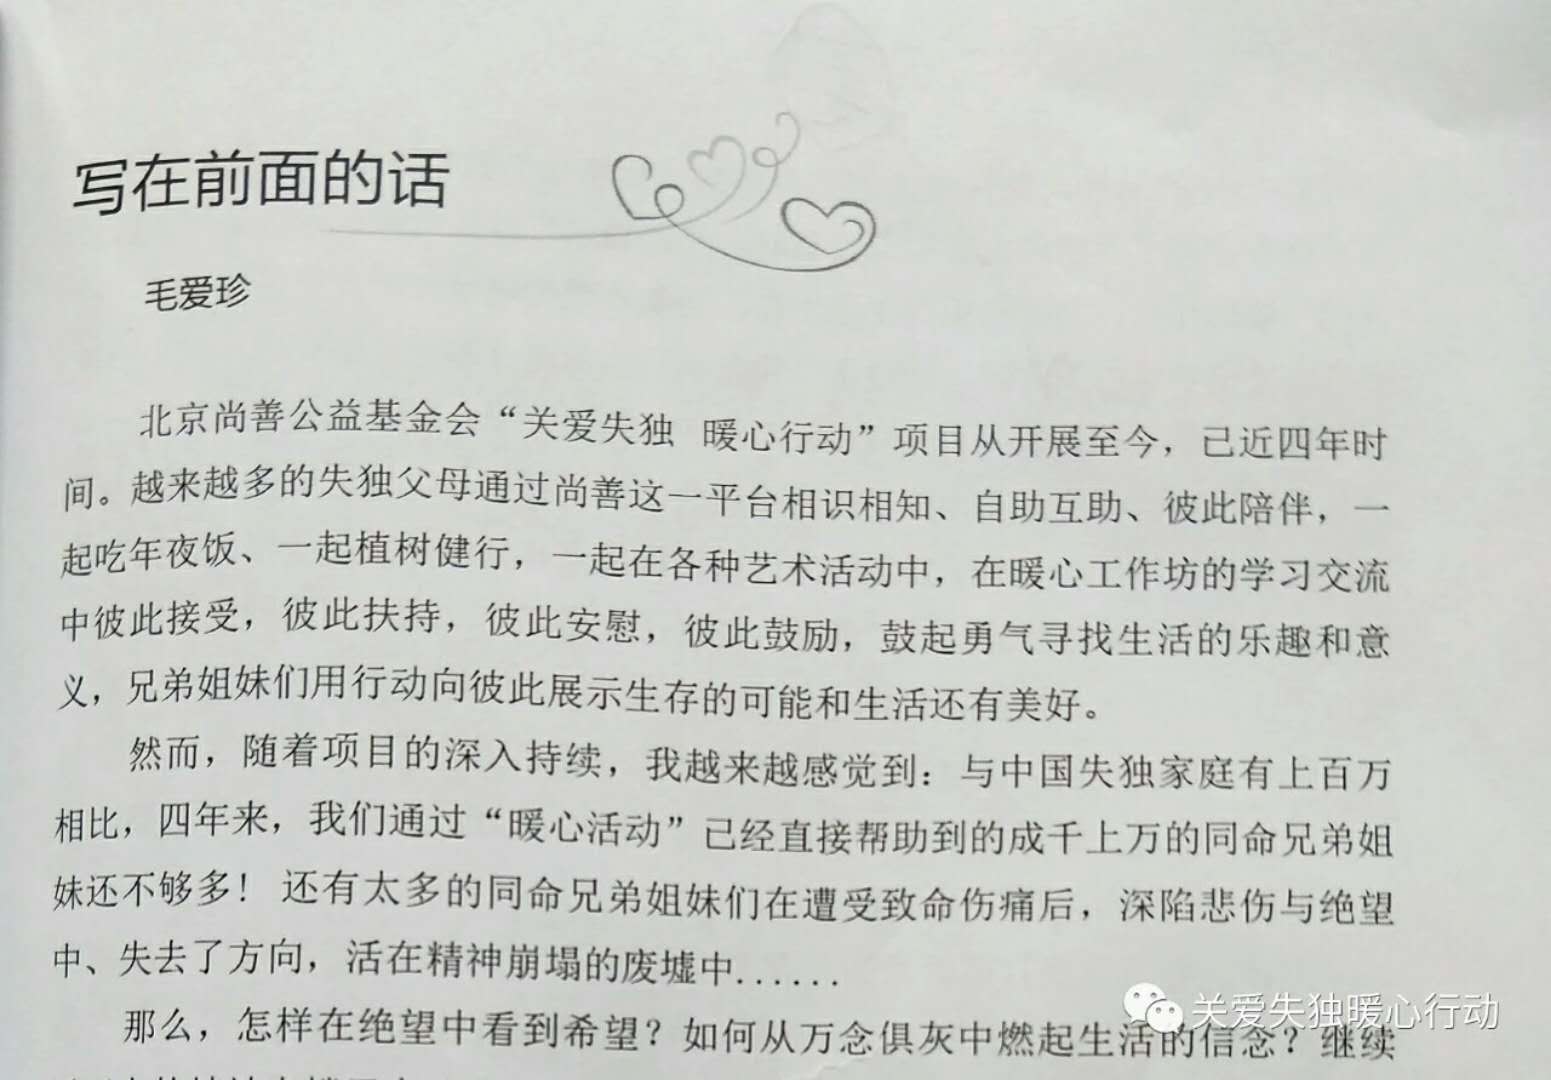 写在前面的话
毛爱珍
北京尚善公益基金会“关爱失独 暖心行动”项目从开展至今，已近四年时
间。越来越多的失独父母通过尚善这一平台相识相知、自助互助、彼此陪伴，一
起吃年夜饭、一起植树健行，一起在各种艺术活动中，在暖心工作坊的学习交流
中彼此接受，彼此扶持，彼此安慰，彼此鼓励，鼓起勇气寻找生活的乐趣和意
义，兄弟姐妹们用行动向彼此展示生存的可能和生活还有美好。
然而，随着项目的深入持续，我越来越感觉到：与中国失独家庭有上百万
相比，四年来，我们通过“暖心活动”已经直接帮助到的成千上万的同命兄弟姐
妹还不够多！还有太多的同命兄弟姐妹们在遭受致命伤痛后，深陷悲伤与绝望
中、失去了方向，活在精神崩塌的废墟中......
那么，怎样在绝望中看到希望？如何从万念俱灰中燃起生活的信念？继续
关爱失独暖心行动